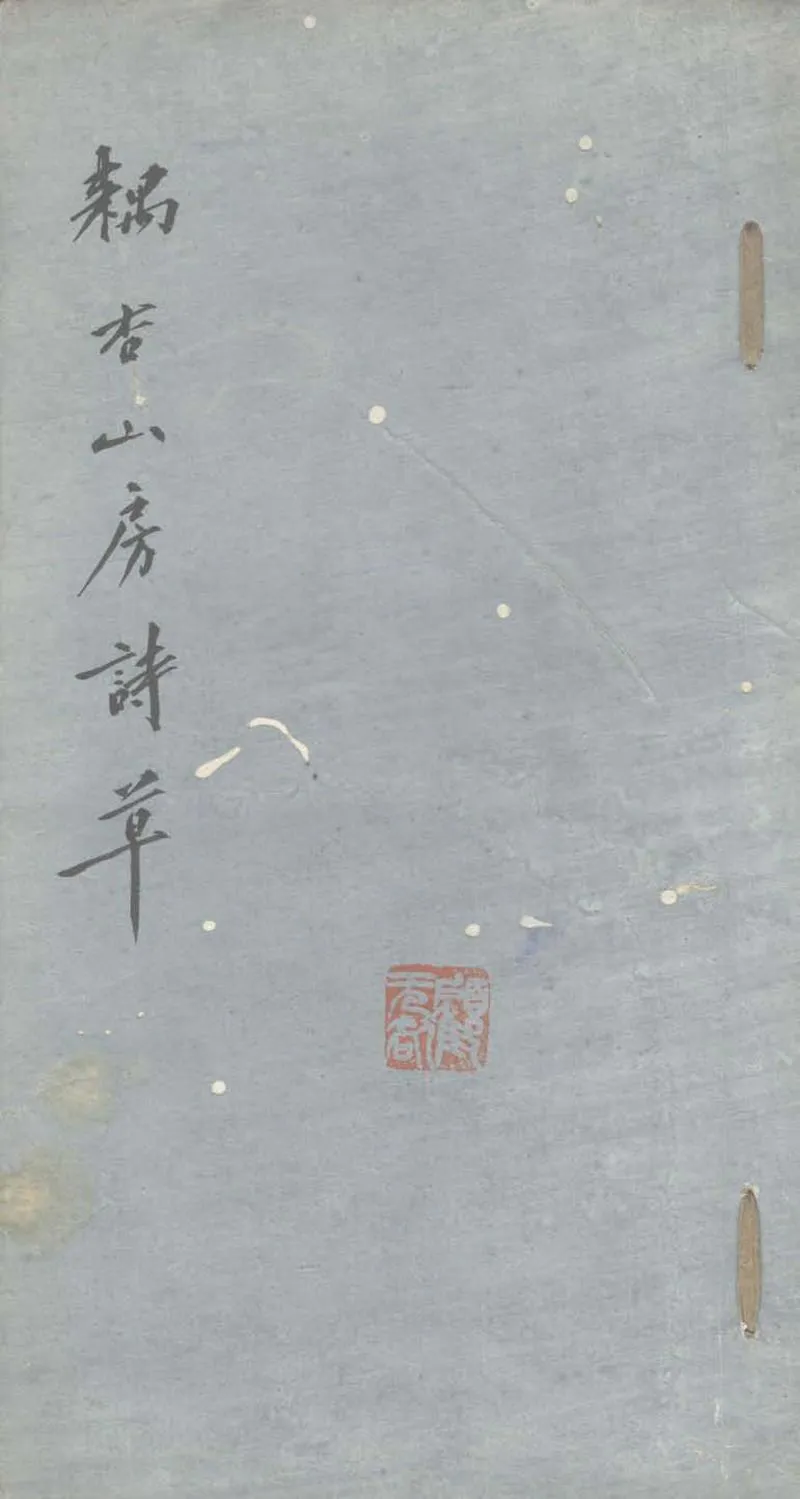 耦杏山房詩草